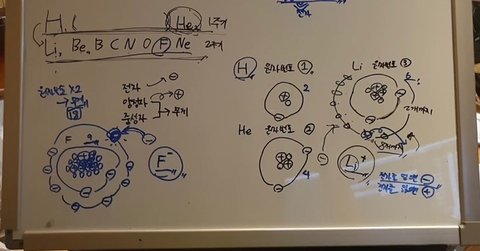 H , He, 1주기
Li, Be, B C N O F Ne 2주기
원자번호 X2
→ 무게
18
전자 ⊖
양성자 ⊕
중성자
무게
F 9
F⁻
H 원자번호 ①
2
He 원자번호 ②
4
Li 원자번호 ③
6
2개까지
8개까지
Li⁺
전자를 얻으면 ⊖
전자를 잃으면 ⊕